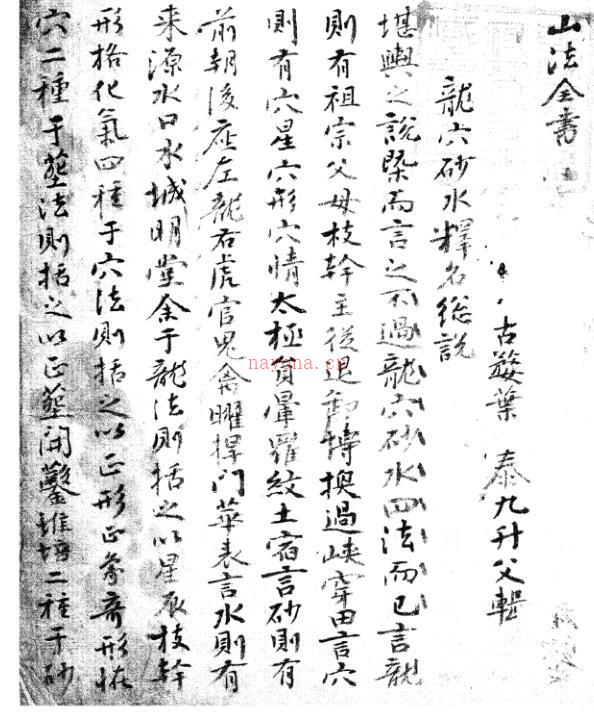 山法全書
古婺葉 泰九升父輯
龍穴砂水釋名総說
堪輿之說槩而言之不過龍穴砂水四法而已言龍
則有祖宗父母枝幹主從退卸博換過峽穿田言穴
則有穴星穴形穴情太極自暈羅紋土宿言砂則有
前朝後座左龍右虎官鬼禽曜捍門華表言水則有
来源水口水城明堂余于龍法則括之以星辰枝幹
形格化氣四種于穴法則括之以正形正象奇形怪
穴二種于塟法則括之以正塟開鑿堆培二種于砂
nayona.cn